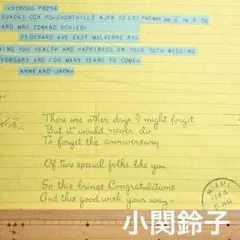 AND MRS EDWARD SCHIED=
25 GERARD AVE EAST MALVERNE NY=
YOU HEALTH AND HAPPINESS ON YOUR 50TH WEDDING
AND FOR MANY YEARS TO COME=
ANNE AND JACK=
There are other days I might forget
But it would never do
To forget the anniversary
Of two special folks like you
So this brings Congratulations
And this good wish your way-
MIAMI
小関鈴子